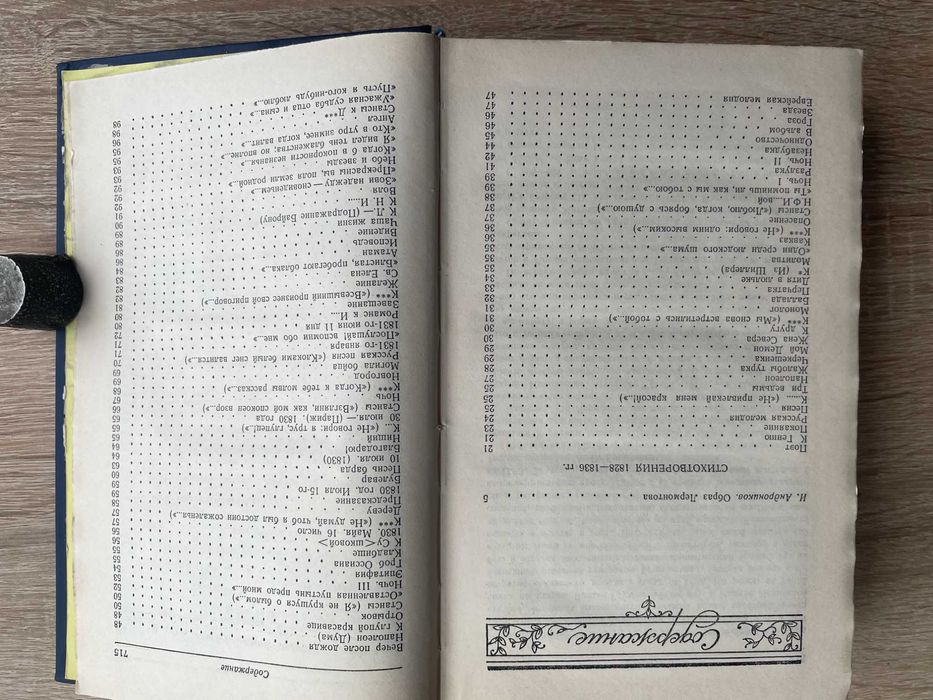 Содержание
И. Андроников. Образ Лермонтова . . . 5
СТИХОТВОРЕНИЯ 1828—1836 гг.
Поэт . . . 21
К Гению . . . 21
Покаяние . . . 23
Русская мелодия . . . 24
Песня . . . 25
К...... («Не привлекай меня красой!») . . . 25
Три ведьмы . . . 25
Наполеон . . . 27
Жалобы турка . . . 28
Черкешенка . . . 29
Мой Демон . . . 29
Жена Севера . . . 30
К другу . . . 30
К*** («Мы снова встретились с тобой...») . . . 31
Монолог . . . 31
Баллада . . . 32
Перчатка . . . 33
Дитя в люльке . . . 34
К* (Из Шиллера) . . . 35
Молитва . . . 35
«Один среди людского шума...» . . . 35
Кавказ . . . 36
К*** («Не говори: одним высоким...») . . . 36
Опасение . . . 37
Стансы («Люблю, когда, борясь с душою...») . . . 37
Н Ф И....вой . . . 38
«Ты помнишь ли, как мы с тобою...» . . . 39
Ночь I . . . 39
Разлука . . . 41
Ночь II . . . 42
Незабудка . . . 44
Одиночество . . . 45
В альбом . . . 46
Гроза . . . 46
Звезда . . . 47
Еврейская мелодия . . . 47
Содержание 715
Вечер после дождя . . . 48
Наполеон (Дума) . . . 48
К глупой красавице
Отрывок
Стансы («Я не крушуся о былом...») . . . 50
«Оставленная пустынь предо мной...»
Ночь. III
Эпитафия
Гроб Оссиана
Кладбище
К Су<шковой>
1830. Майя. 16 число
К*** («Не думай, чтоб я был достоин сожаленья...»)
Дереву
Предсказание
1830 год. Июля 15-го
Булевар
Песнь барда
10 июля. (1830)
Благодарю!
Нищий
К... («Не говори: я трус, глупец!..») . . . 65
30 июля.— (Париж): 1830 года
Стансы («Взгляни, как мой спокоен взор...»)
Ночь
К*** («Когда к тебе молвы рассказ...») . . . 68
Новгород . . . 69
Могила бойца . . . 69
Русская песня («Клоками белый снег валится») . . . 70
1831-го января . . . 71
«Послушай! вспомни обо мне...» . . . 71
1831-го июня 11 дня
Романс к И...
Завещание
К*** («Всевышний произнес свой приговор...»)
Желание
Св. Елена
«Блистая, пробегают облака...»
Атаман
Исповедь
Видение
Чаша жизни
К Л.— (Подражание Байрону)
К Н. И......
Воля
«Зови надежду — сновиденьем...»
«Прекрасны вы, поля земли родной...»
Небо и звезды
«Когда б в покорности незнанья...» . . . 95
«Я видел тень блаженства; но вполне...»
«Кто в утро зимнее, когда валит»
Ангел
Стансы к Д***
«Ужасная судьба отца и сына...»
«Пусть я кого-нибудь люблю...»